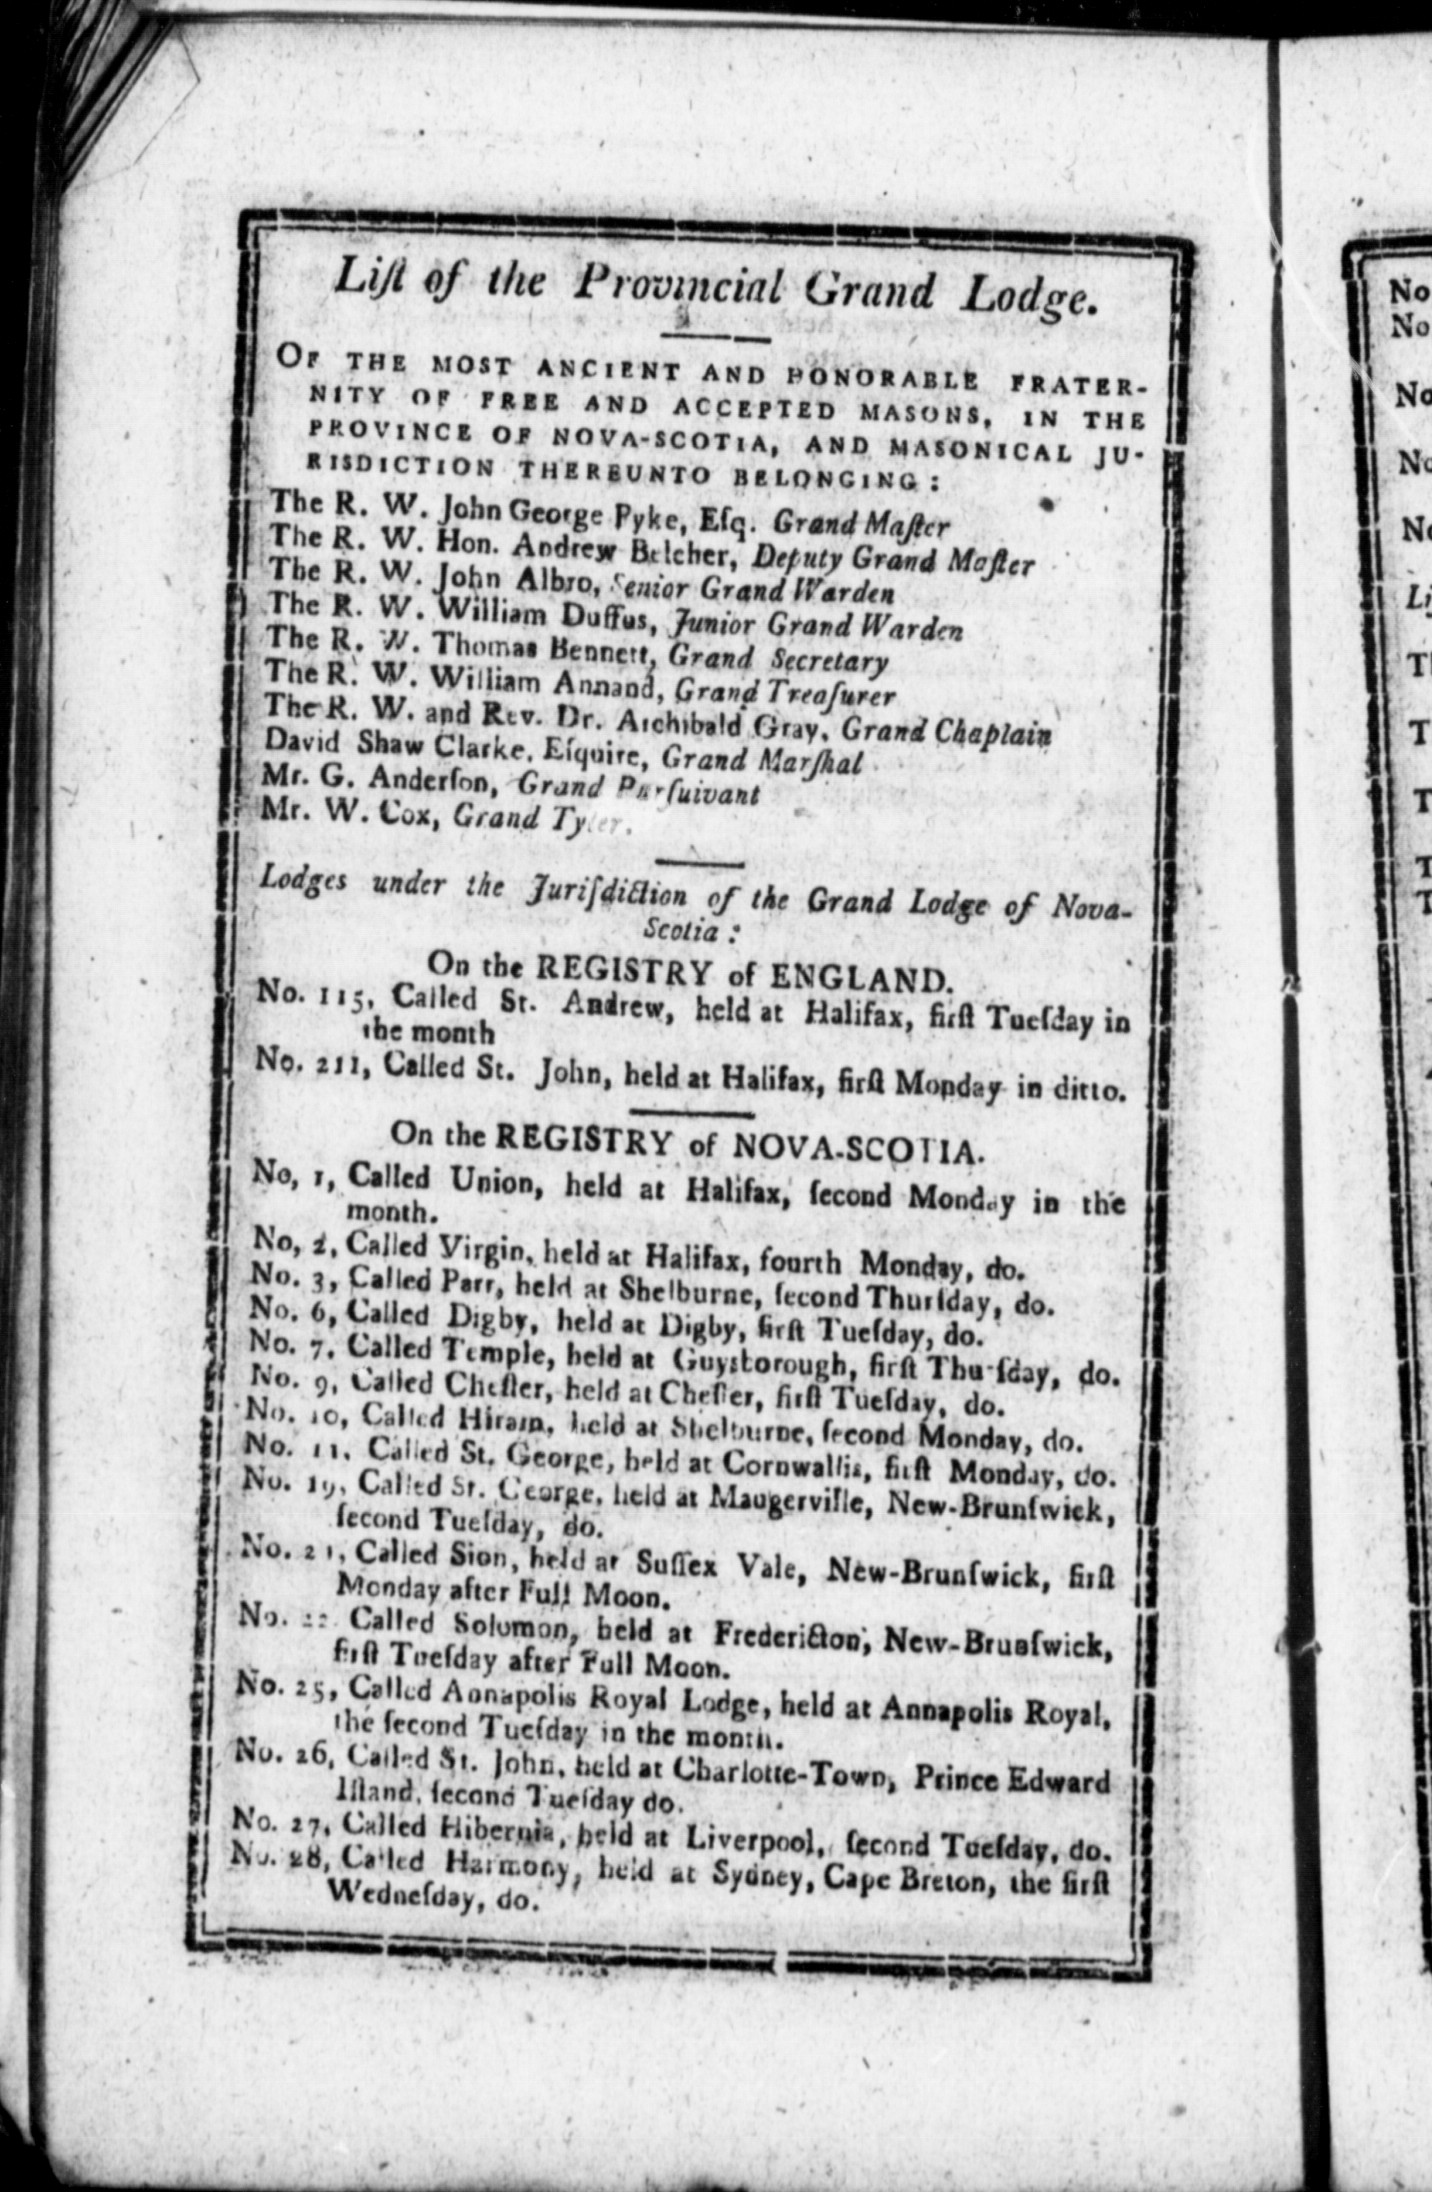 Liſt of the Provincial Grand Lodge.
OF THE MOST ANCIENT AND HONORABLE FRATER-
NITY OF FREE AND ACCEPTED MASONS, IN THE
PROVINCE OF NOVA-SCOTIA, AND MASONICAL JU-
RISDICTION THEREUNTO BELONGING:
The R. W. John George Pyke, Eſq. Grand Maſter
The R. W. Hon. Andrew Belcher, Deputy Grand Maſter
The R. W. John Albro, Senior Grand Warden
The R. W. William Duffus, Junior Grand Warden
The R. W. Thomas Bennett, Grand Secretary
The R. W. William Annand, Grand Treaſurer
The R. W. and Rev. Dr. Archibald Gray, Grand Chaplain
David Shaw Clarke, Eſquire, Grand Marſhal
Mr. G. Anderſon, Grand Purſuivant
Mr. W. Cox, Grand Tyler.
Lodges under the Juriſdiction of the Grand Lodge of Nova-
Scotia:
On the REGISTRY of ENGLAND.
No. 115, Called St. Andrew, held at Halifax, firſt Tueſday in
the month
No. 211, Called St. John, held at Halifax, firſt Monday in ditto.
On the REGISTRY of NOVA-SCOTIA.
No, 1, Called Union, held at Halifax, ſecond Monday in the
month.
No, 2, Called Virgin, held at Halifax, fourth Monday, do.
No. 3, Called Parr, held at Shelburne, ſecond Thurſday, do.
No. 6, Called Digby, held at Digby, firſt Tueſday, do.
No. 7, Called Temple, held at Guysborough, firſt Thurſday, do.
No. 9, Called Cheſter, held at Cheſter, firſt Tueſday, do.
No. 10, Called Hiram, held at Shelburne, ſecond Monday, do.
No. 11, Called St. George, held at Cornwallis, firſt Monday, do.
No. 19, Called St. George, held at Maugerville, New-Brunſwick,
ſecond Tueſday, do.
No. 21, Called Sion, held at Suſſex Vale, New-Brunſwick, firſt
Monday after Full Moon.
No. 22 Called Solomon, held at Frederiction, New-Brunſwick,
firſt Tueſday after Full Moon.
No. 25, Called Annapolis Royal Lodge, held at Annapolis Royal,
the ſecond Tueſday in the month.
No. 26, Called St. John, held at Charlotte-Town, Prince Edward
Iſland, ſecond Tueſday do.
No. 27, Called Hibernia, held at Liverpool, ſecond Tueſday, do.
No. 28, Called Harmony, held at Sydney, Cape Breton, the firſt
Wedneſday, do.